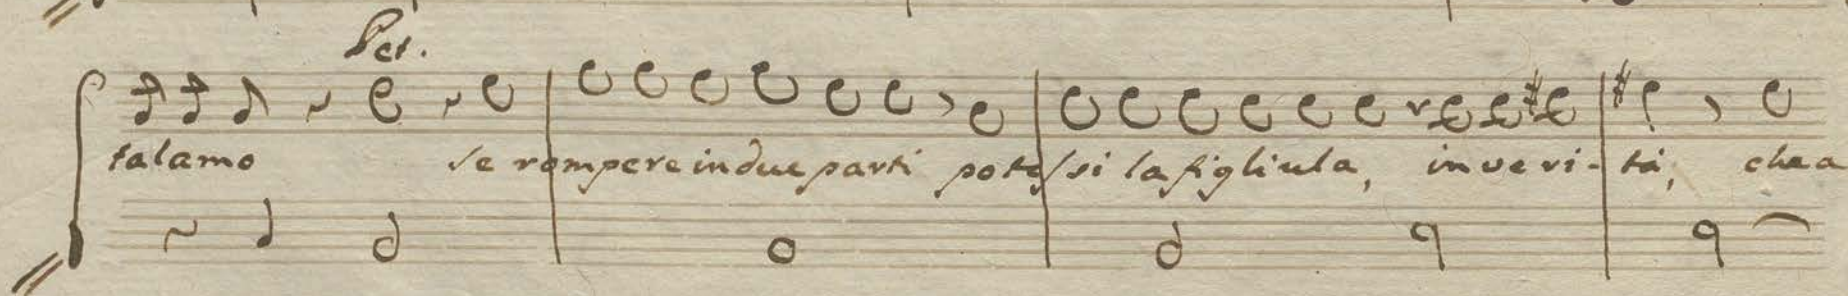 Pet.
talamo se rompere in due parti potessi la figliula, in veri-tà, che a